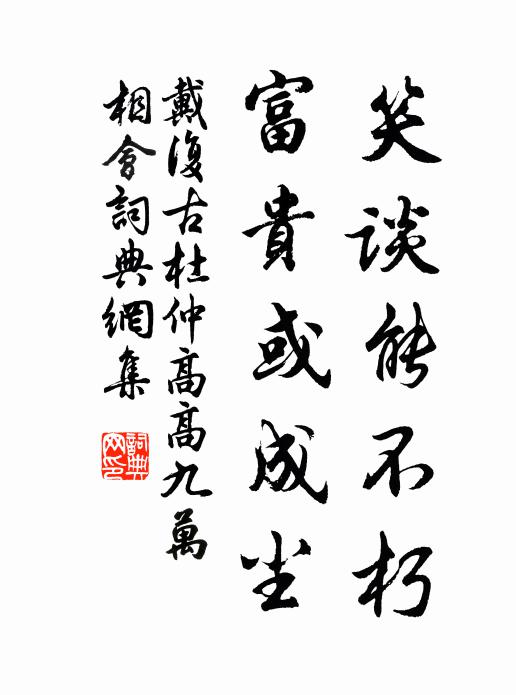 笑談能不朽
富貴或成尘
戴復古杜仲高高九萬
相會詞典網集
詞典
网印